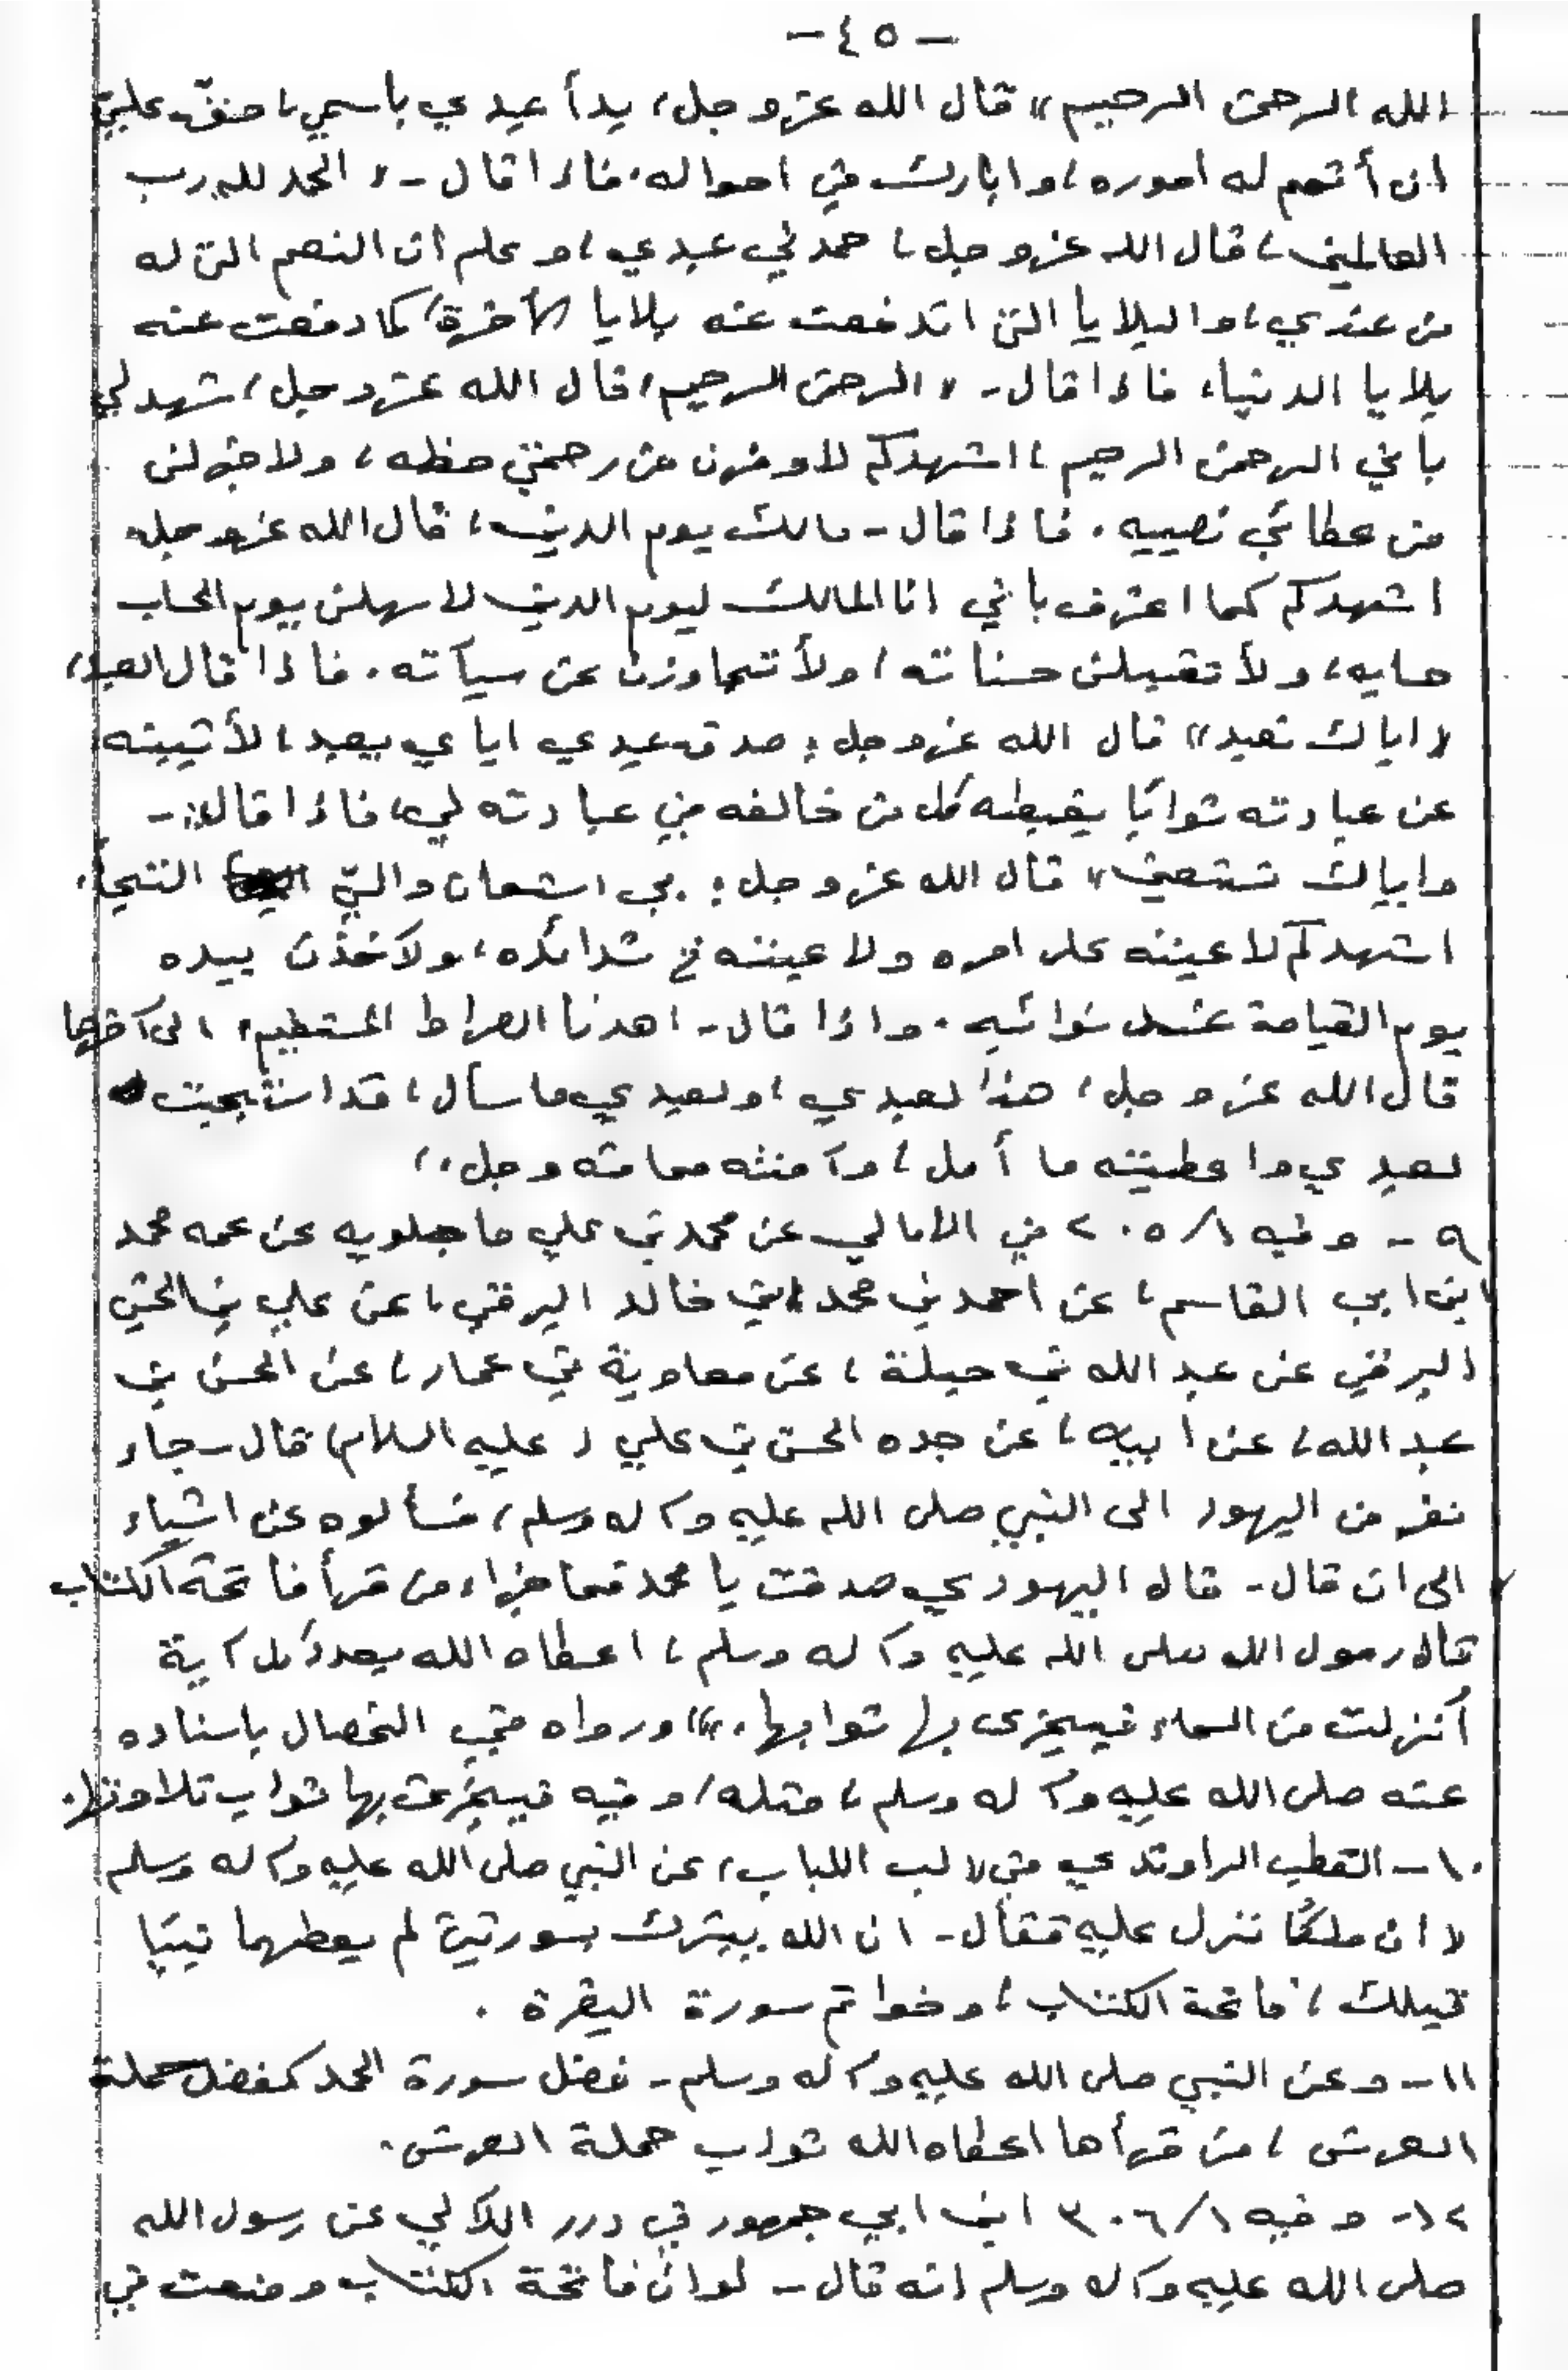 - ٤٥ -
الله الرحمن الرحيم» قال الله عز وجل، بدأ عبدي باسمي، حقّ عليّ
ان أتمم له اموره، وابارك في احواله، فاذا قال - « الحمد لله رب
العالمين، قال الله عز وجل، حمدني عبدي، وعلم ان النعم التي له
من عندي، والبلايا التي اندفعت عنه بلايا الآخرة، كما دفعت عنه
بلايا الدنيا، فاذا قال - « الرحمن الرحيم، قال الله عز وجل، شهد لي
باني الرحمن الرحيم، اشهدكم لاوفرن من رحمتي حظه، ولاجزلن
من عطائي نصيبه. فاذا قال - مالك يوم الدين، قال الله عز وجل
اشهدكم كما اعترف باني انا المالك ليوم الدين لاسهلن يوم الحساب
حسابه، ولأتقبلن حسناته، ولأتجاوزن عن سيآته. فاذا قال العبد،
« اياك نعبد» قال الله عز وجل: صدق عبدي اياي يعبد، لأثيبنه
عن عبادته ثوابًا يغبطه كل من خالفه في عبادته لي، فاذا قال: -
واياك نستعين» قال الله عز وجل: بي استعان والىّ التتجأ،
اشهدكم لاعيننه على امره ولاعيننه في شدائده، ولآخذن بيده
يوم القيامة عند نوائبه. واذا قال - اهدنا الصراط المستقيم، الى آخرها
قال الله عز وجل، هذا لعبدي، ولعبدي ما سأل، قد استجبت
لعبدي واعطيته ما أمل، وآمنته مما منه وجل،،
٩ - وفيه ٢٠٥/١ في الامالي عن محمد بن علي ماجيلويه عن عمه محمد
ابن ابي القاسم، عن احمد بن محمد ابن خالد البرقي، عن علي بن الحسين
البرقي عن عبد الله بن جبلة، عن معاوية بن عمار، عن الحسن بن
عبد الله، عن ابيه، عن جده الحسن بن علي ( عليه السلام) قال - جاء
نفر من اليهود الى النبي صلى الله عليه وآله وسلم، فسألوه عن اشياء
الى ان قال - قال اليهودي صدقت يا محمد فما جزاء من قرأ فاتحة الكتاب
قال رسول الله صلى الله عليه وآله وسلم، اعطاه الله بعدد كل آية
أنزلت من السماء فيجزى بها ثوابها،» ورواه في الخصال باسناده
عنه صلى الله عليه وآله وسلم، مثله، وفيه فيجزى بها ثواب تلاوتها.
١٠ - القطب الراوندي في « لب اللباب، عن النبي صلى الله عليه وآله وسلم
« ان ملكًا نزل عليه فقال - ان الله يبشرك بسورتين لم يعطهما نبيًا
قبلك، فاتحة الكتاب، وخواتم سورة البقرة.
١١ - وعن النبي صلى الله عليه وآله وسلم - فضل سورة الحمد كفضل حملة
العرش، من قرأها اعطاه الله ثواب حملة العرش.
١٢ - وفيه ٣٠٦/١ ابن ابي جمهور في درر اللآلي عن رسول الله
صلى الله عليه وآله وسلم انه قال - لو ان فاتحة الكتاب وضعت في